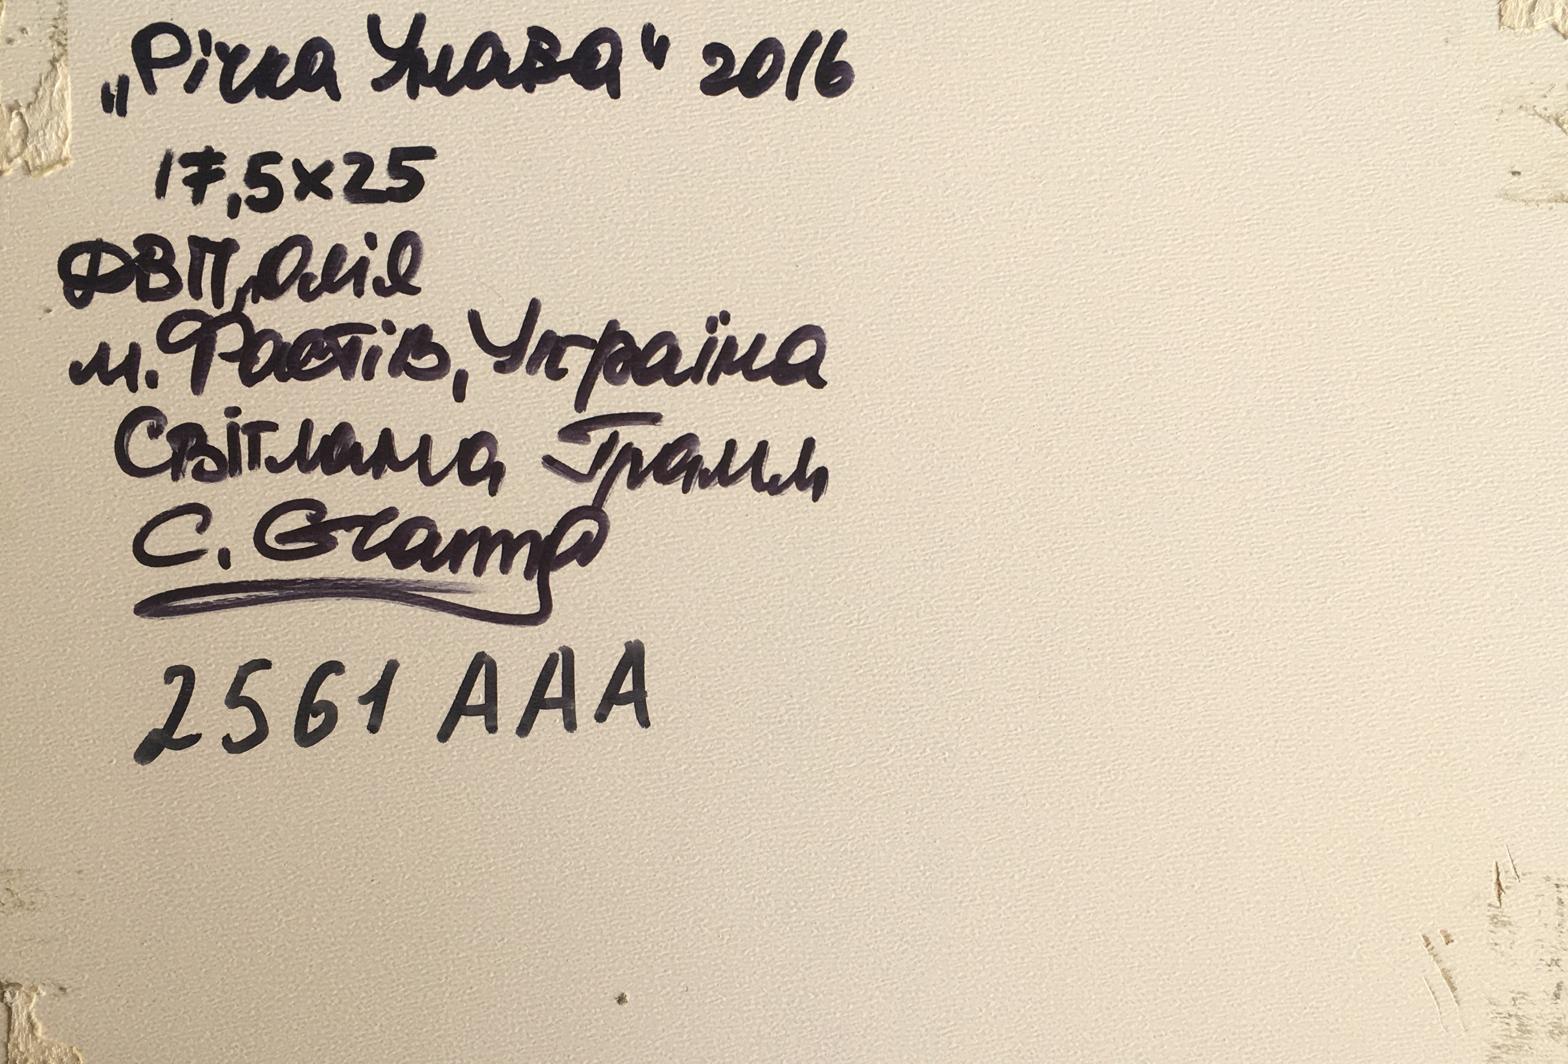 „Річка Унава“ 2016
17,5х25
ДВП, олія
м. Фастів, Україна
Світлана Грамм
С. Gramm
2561 ААА